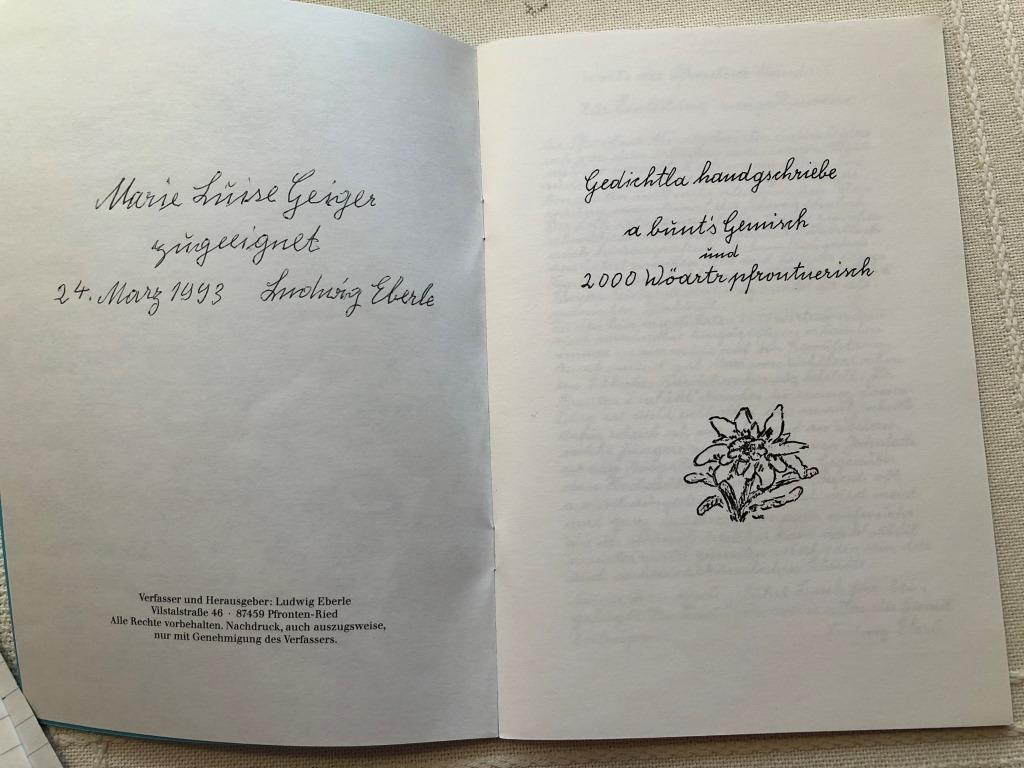 Marie Luise Geiger
zugeeignet
24. März 1993 Ludwig Eberle
Verfasser und Herausgeber: Ludwig Eberle
Vilstalstraße 46 · 87459 Pfronten-Ried
Alle Rechte vorbehalten. Nachdruck, auch auszugsweise,
nur mit Genehmigung des Verfassers.
Gedichtla handgschriebe
a bunt's Gemisch
und
2000 Wöartr pfrontnerisch